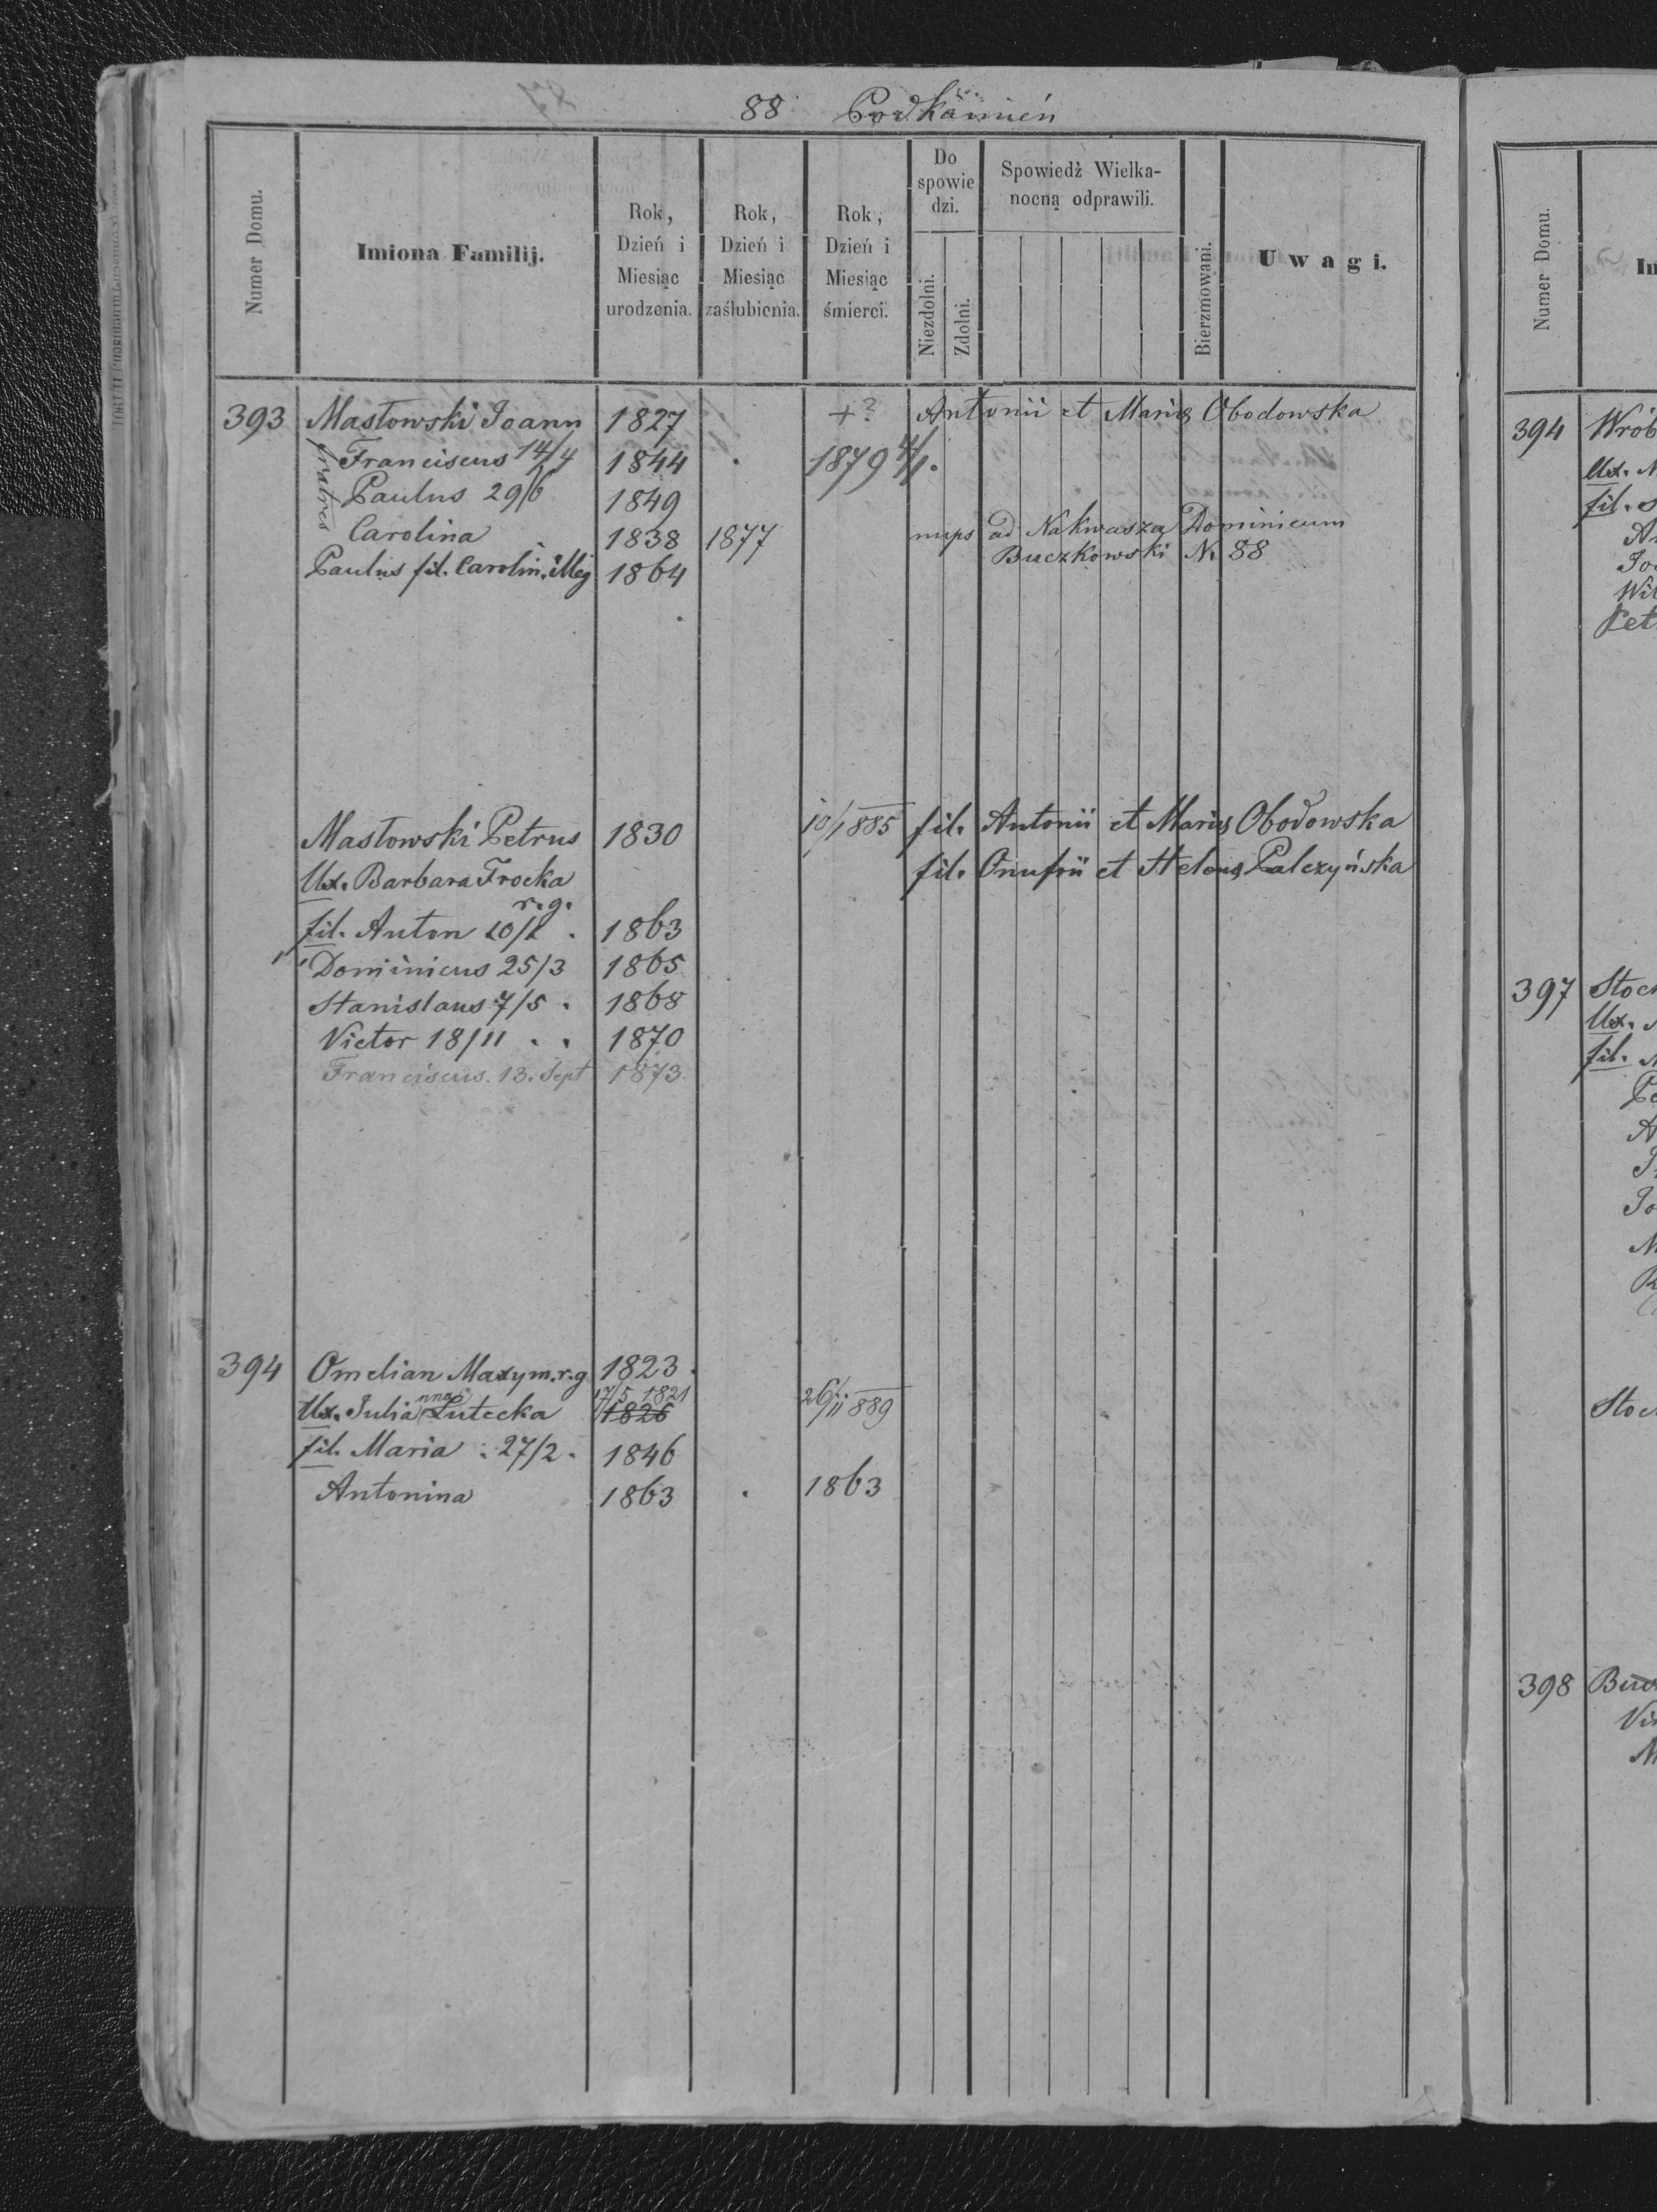 88 Podkamień
Numer Domu.
Imiona Familij.
Rok, Dzień i Miesiąc urodzenia.
Rok, Dzień i Miesiąc zaślubienia.
Rok, Dzień i Miesiąc śmierci.
Do spowiedzi.
Niezdolni.
Zdolni.
Spowiedź Wielkanocną odprawili.
Bierzmowani.
Uwagi.
393 Masłowski Joann 1827 +? Antonii et Mariæ Obodowska
fratres
Franciscus 14/4 1844 . 1879 4/1.
Paulus 29/6 1849
Carolina 1838 1877 nups ad Nakwasza Dominicum
Paulus fil. Carolin. illeg 1864 Buczkowski N. 88
Masłowski Petrus 1830 10/1 885 fil. Antonii et Mariæ Obodowska
Ux. Barbara Trocka fil. Onufrii et Helenæ Palczyńska
r. g.
fil. Anton 20/2 . 1863
Dominicus 25/3 1865
Stanislaus 7/5 . 1868
Victor 18/11 . . 1870
Franciscus. 13. Sept 1873
394 Omelian Maxym. r. g 1823.
17/5 1821
Ux. Julia Lutecka 1826 26/11 889
fil. Maria . 27/2 . 1846
Antonina 1863 . 1863
Numer Domu.
394 Wrób
Ux.
fil.
397 Stoc
Ux.
fil.
Stoc
398